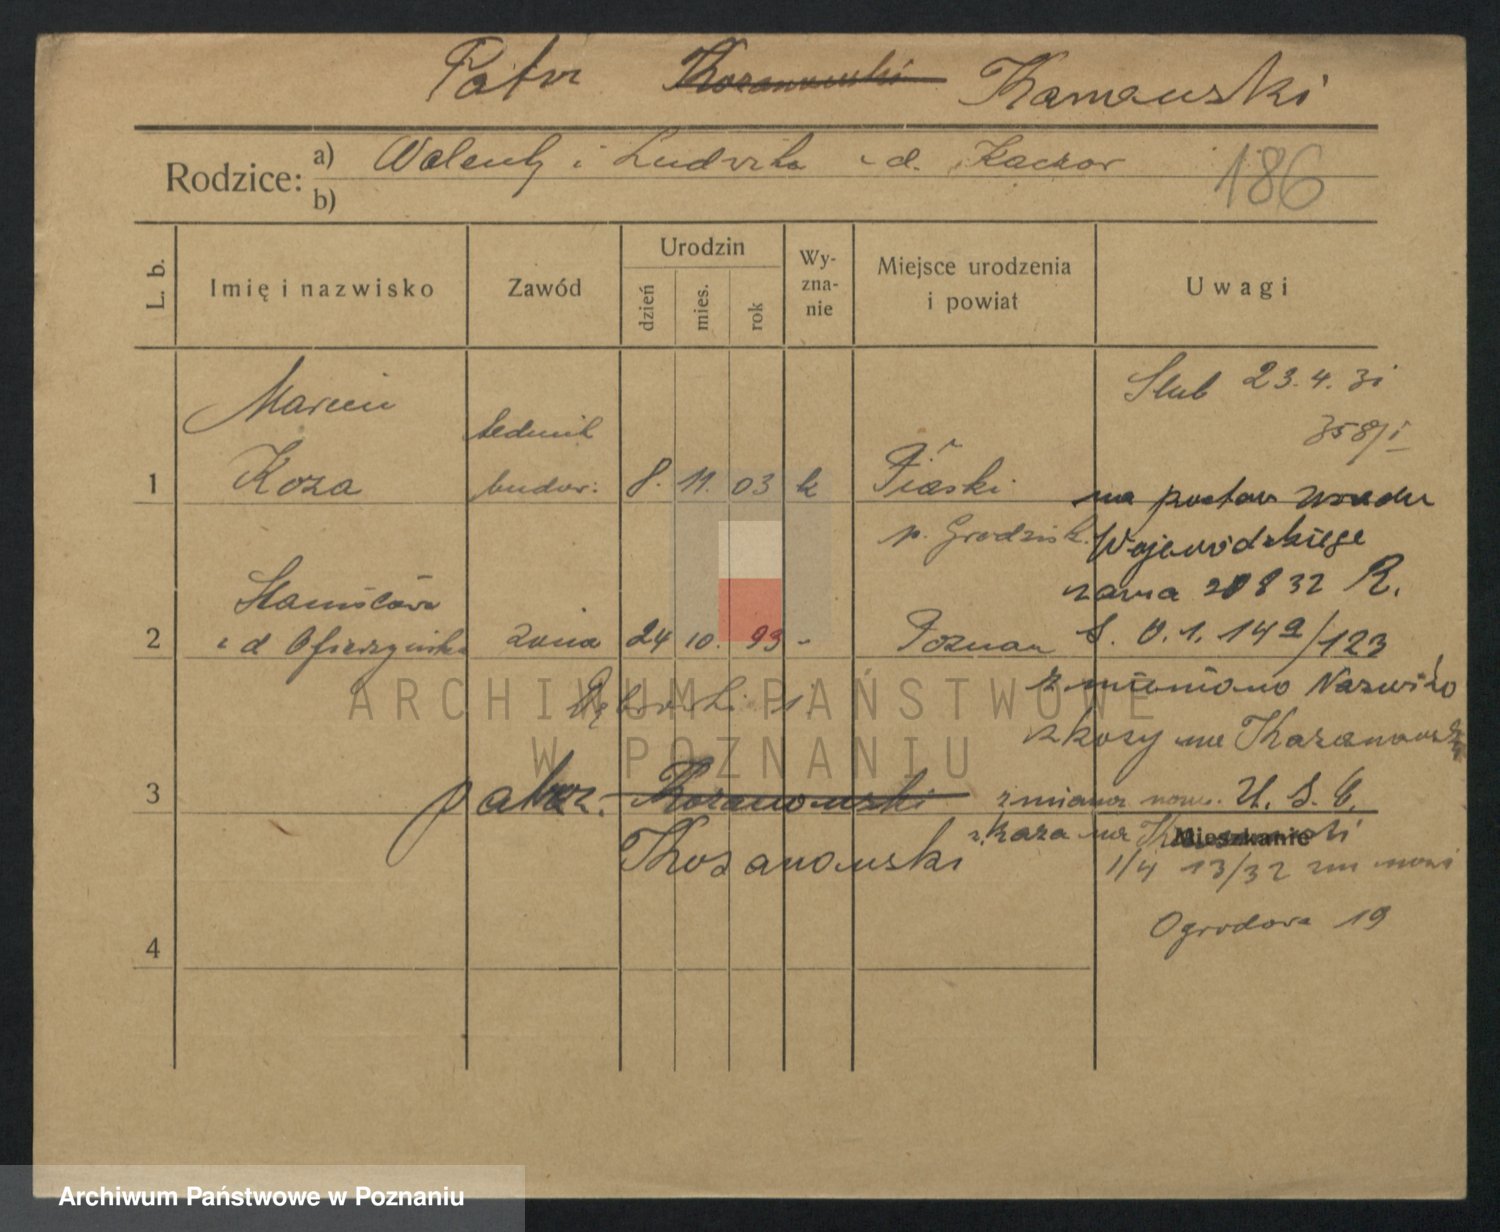 Patrz Kozanowski Kamauski
Rodzice: a) Walenty i Ludwika z d. Kaczor
b)
186
L. b. Imię i nazwisko Zawód Urodzin dzień mies. rok Wy-zna-nie Miejsce urodzenia i powiat Uwagi
Marcin
Ślub 23.4.31
358/I
technik
1 Koza budow. 8. 11. 03 k Piaski
p. Grodzisk
na postaw Urzędu
Wojewódzkiego
z dnia 20 8 32 R.
Stanisława
2 z d Ofierzyńska żona 24 10. 93 - Poznań
S. O. 1. 14a/123
zmieniono Nazwisko
z Kozy na Kozanowski
3 patrz. Kozanowski
Kozanowski
zmiana nazw. U. S. C.
z Koza na Kozanowski
Mieszkanie
1/4 13/32
Ogrodowa 19
4
ARCHIWUM PAŃSTWOWE
W POZNANIU
Archiwum Państwowe w Poznaniu